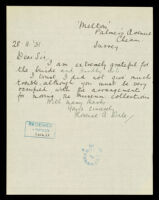 "Melton"
Palmers Avenue
Cheam
Surrey
28. 11. '31
Dear Sir,
I am extremely grateful for
the guide and
I trust I did not give much
trouble, although you must be very
occupied with the arrangements
for moving the Museum Collections
With many thanks
Yours sincerely
Horace A.
RECEIVED